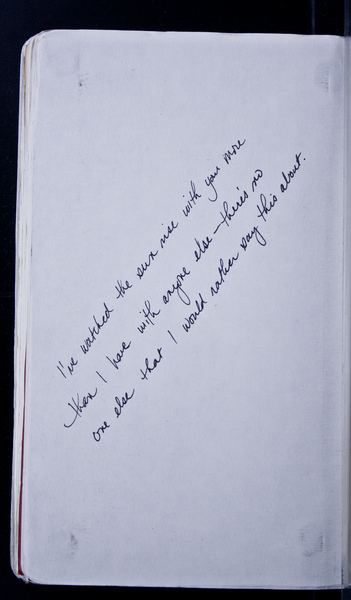 I've watched the sun rise with you more
than I have with anyone else – there's no
one else that I would rather say this about.